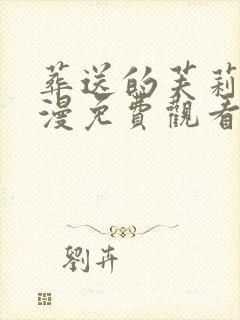 葬送的芙莉
漫免費觀看
劉卉